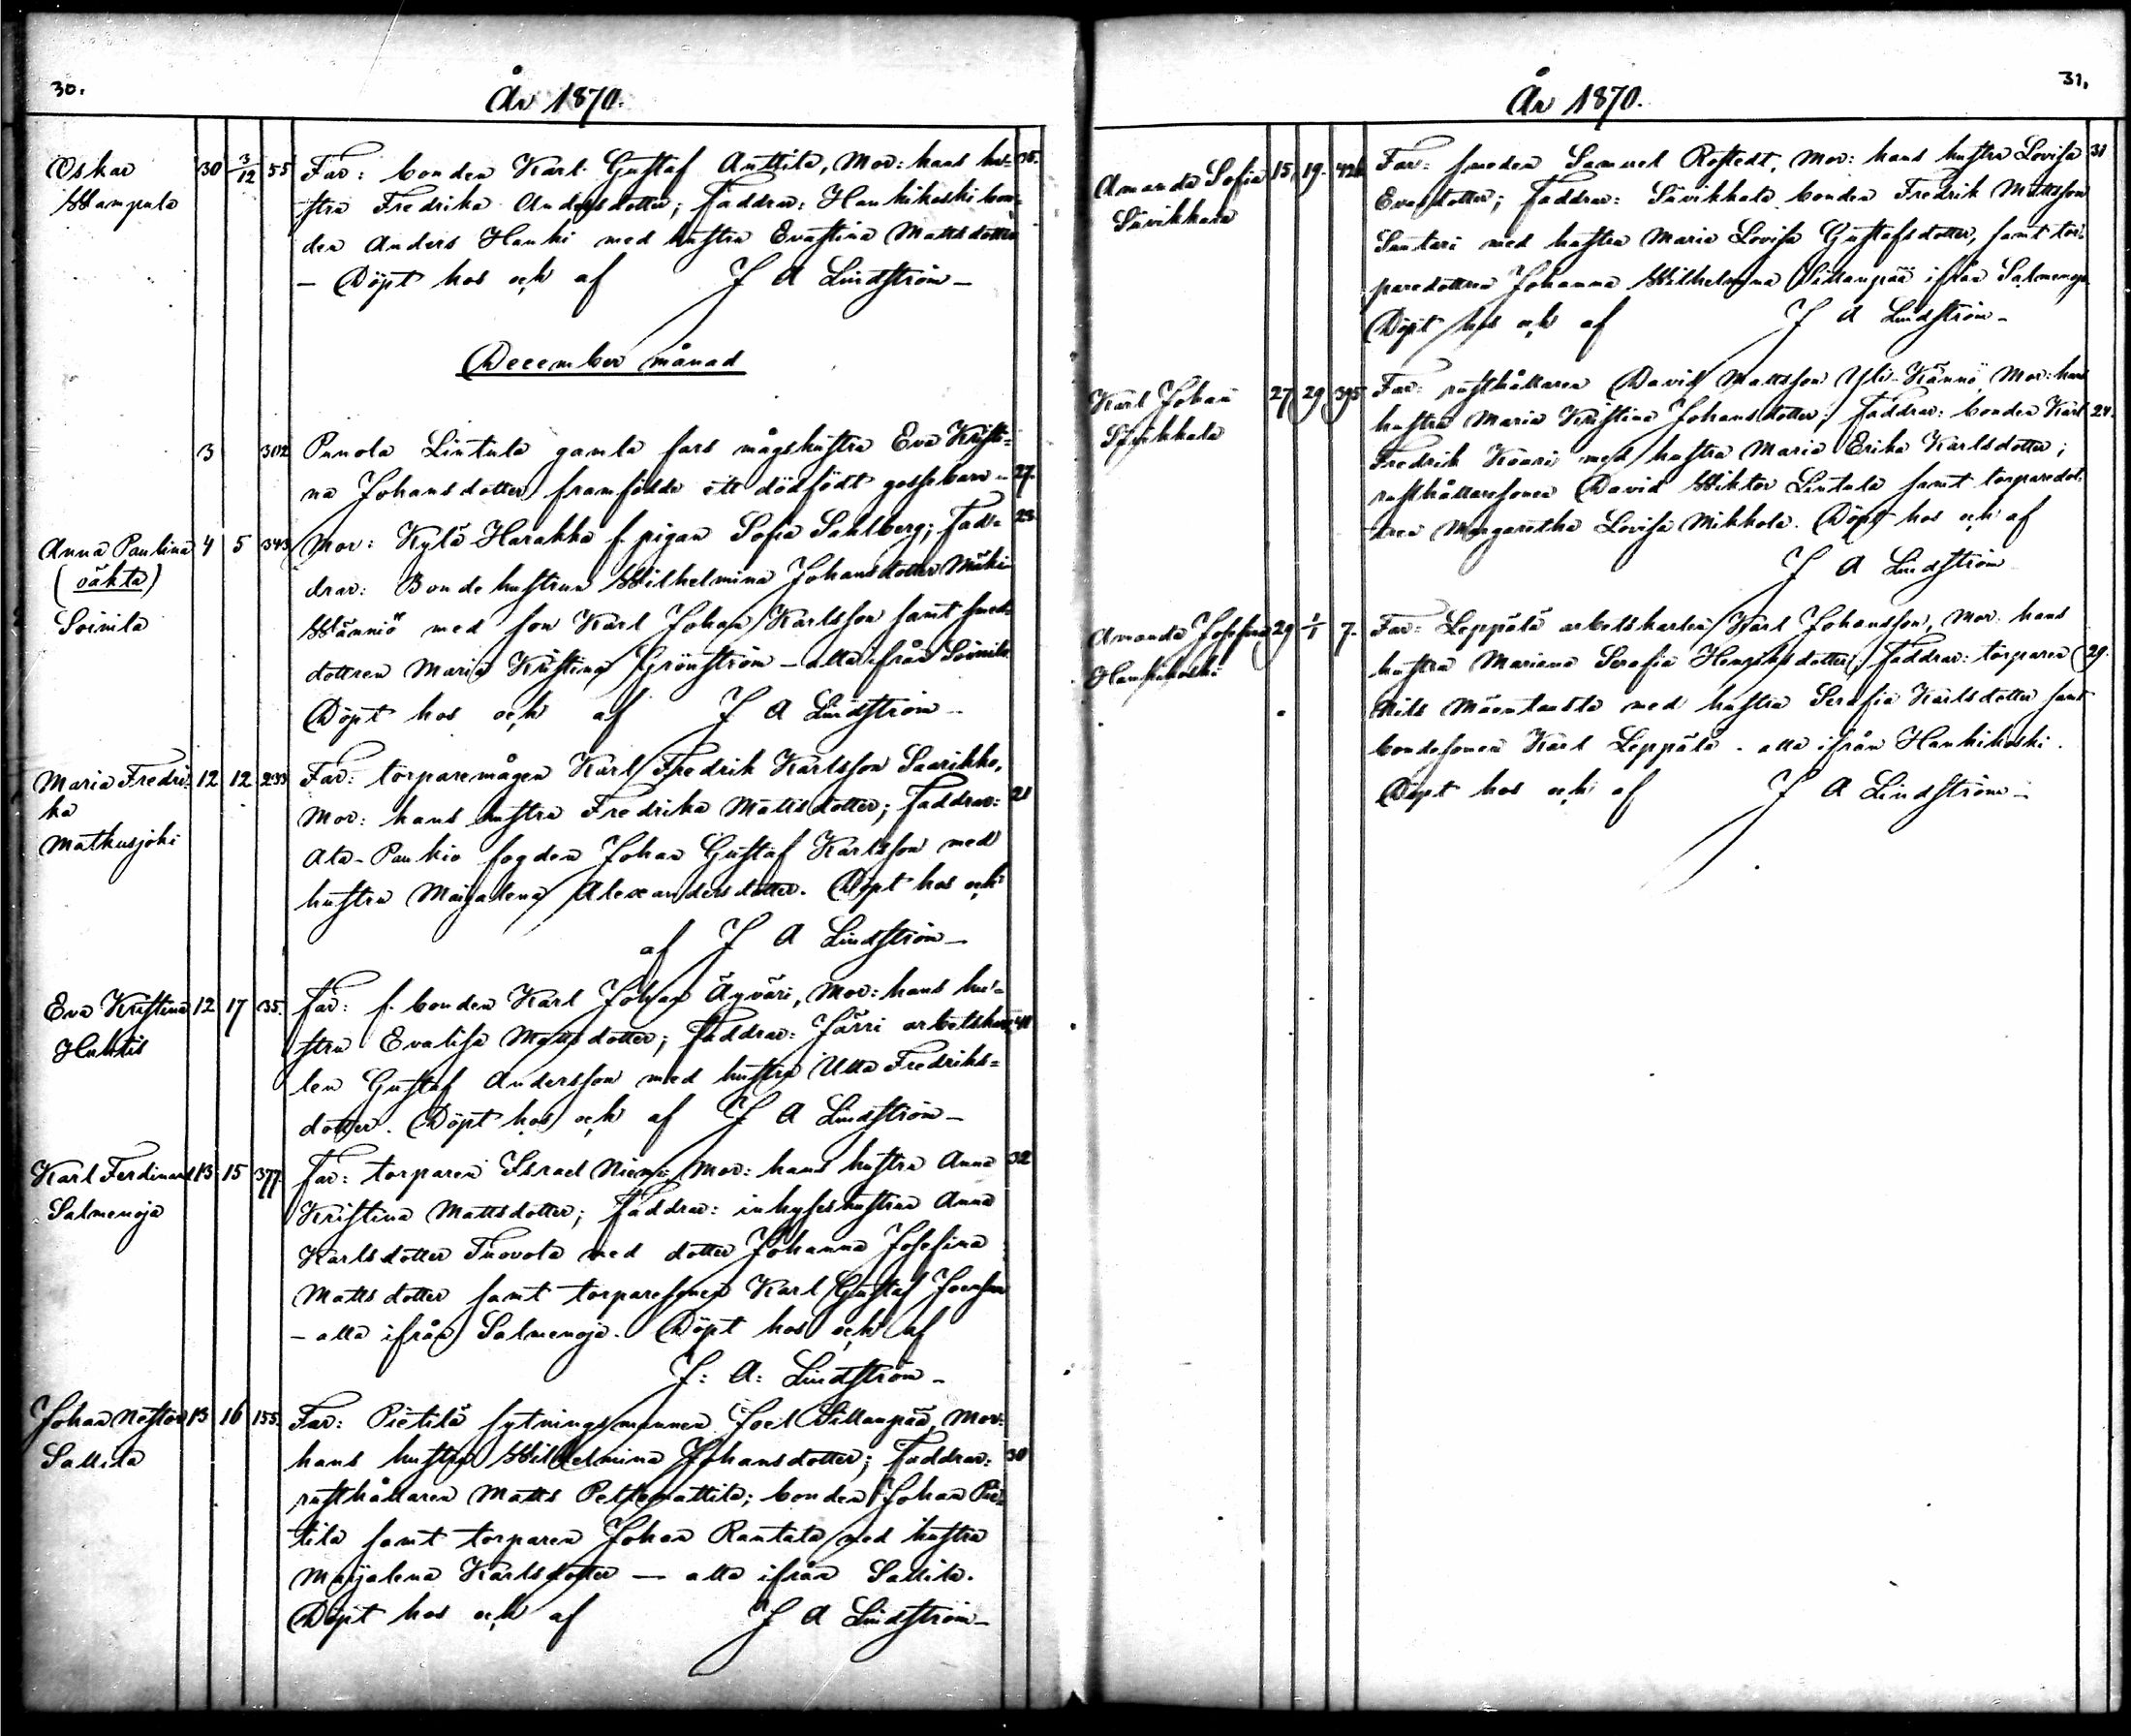 30.
År 1870.
Oskar 30 3/12 55 Far: bonden Karl Gustaf Anttila, Mor: hans hu= 36.
Wampula stru Fredrika Andersdotter; Faddrar: Hankikoski bon=
den Anders Hanki med hustru Evastina Mattsdotter
— Döpt hos och af J A Lindström —
December månad
3 302 Punola Lintula gamla fars mågshustru Eva Kristi=
na Johansdotter framfödde ett dödfödt gossebarn — 27.
Anna Paulina 4 5 343 Mor: Kylä Harakka f. pigan Sofia Sahlberg; Fad= 23.
(oäkta) drar: Bondehustrun Wilhelmina Johansdotter Mäki
Soinila Wänniö med son Karl Johan Karlsson samt smed=
dottren Maria Kristina Grönström — alla ifrån Soinila
Döpt hos och af J A Lindström —
Maria Fredri= 12 12 233 Far: torparemågen Karl Fredrik Karlsson Saarikko,
ka Mor: hans hustru Fredrika Mattsdotter; Faddrar: 21
Matkusjoki Ala-Pankio fogden Johan Gustaf Karlsson med
hustru Majalena Alexandersdotter. Döpt hos och
af J A Lindström —
Eva Kristina 12 17 135. Far: f. bonden Karl Johan Äyväri, Mor: hans hu=
Huhtis stru Evalisa Mattsdotter; Faddrar: Järri arbetskar= 41
len Gustaf Andersson med hustru Ulla Fredriks=
dotter. Döpt hos och af J A Lindström —
Karl Ferdinand 13 15 377. Far: torparen Israel Niemi, Mor: hans hustru Anna 32
Salmenoja Kristina Mattsdotter; Faddrar: inhyseshustrun Anna
Karlsdotter Tuovola med dotter Johanna Josefina
Mattsdotter samt torparesonen Karl Gustaf
— alla ifrån Salmenoja. Döpt hos och af
J: A: Lindström —
Johan Nestor 13 16 155. Far: Pietilä sytningsmannen Joel Sillanpää, Mor:
Sallila hans hustru Wilhelmina Johansdotter; Faddrar: 30
rusthållaren Matts Peltomattila; bonden Johan Pie=
tilä samt torparen Johan Rantala med hustru
Majalena Karlsdotter — alla ifrån Sallila.
Döpt hos och af J A Lindström —
31.
År 1870.
Amanda Sofia 15 19. 426 Far: smeden Samuel Rostedt, Mor: hans hustru Lovisa 31
Sävikkala Evasdotter; Faddrar: Sävikkala bonden Fredrik Mattsson
Santari med hustru Maria Lovisa Gustafsdotter, samt tor=
paredottren Johanna Wilhelmina Sillanpää ifrån Salmenoja
Döpt hos och af J A Lindström —
Karl Johan 27 29 395 Far: rusthållaren David Mattsson Yli-Kännö, Mor: hans
Sävikkala hustru Maria Kristina Johansdotter; Faddrar: bonden Karl 24.
Fredrik Kaari med hustru Maria Erika Karlsdotter;
rusthållaresonen David Wiktor Lintula samt torparedot=
tren Margaretha Lovisa Mikkola. Döpt hos och af
J A Lindström
Amanda Josefina 29 1/1 7. Far: Leppälä arbetskarlen Karl Johansson, Mor: hans
Hankikoski hustru Mariana Serafia Henriksdotter; Faddrar: torparen 29.
Nils Mäentausta med hustru Serafia Karlsdotter samt
bondesonen Karl Leppälä — alla ifrån Hankikoski.
Döpt hos och af J A Lindström —